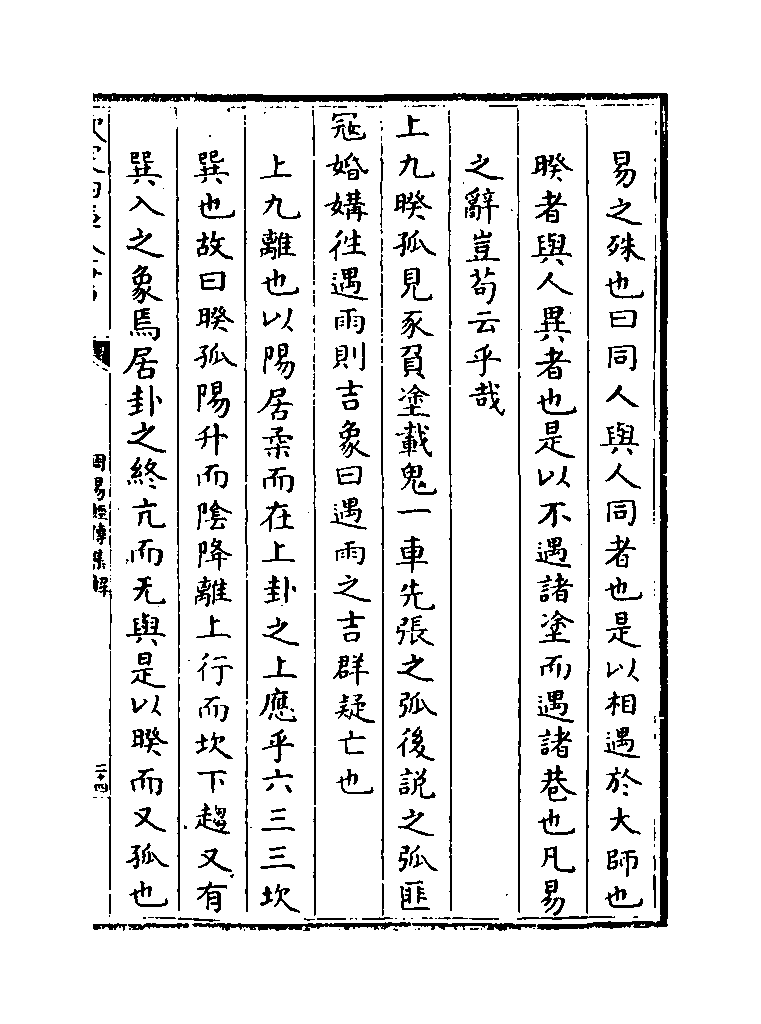 易之殊也曰同人與人同者也是以相遇於大師也
睽者與人異者也是以不遇諸塗而遇諸巷也凡易
之辭豈茍云乎哉
上九睽孤見豕負塗載鬼一車先張之弧後説之弧匪
冦婚媾徃遇雨則吉象曰遇雨之吉群疑亡也
上九離也以陽居柔而在上卦之上應乎六三三坎
巽也故曰睽孤陽升而陰降離上行而坎下趨又有
巽入之象焉居卦之終亢而无與是以睽而又孤也
周易經傳集解
二十四